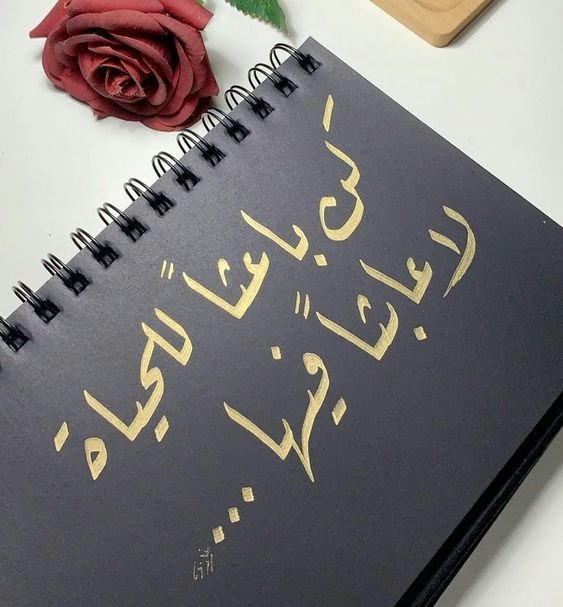 كن باعثاً للحياة
لا عابثاً فيها...